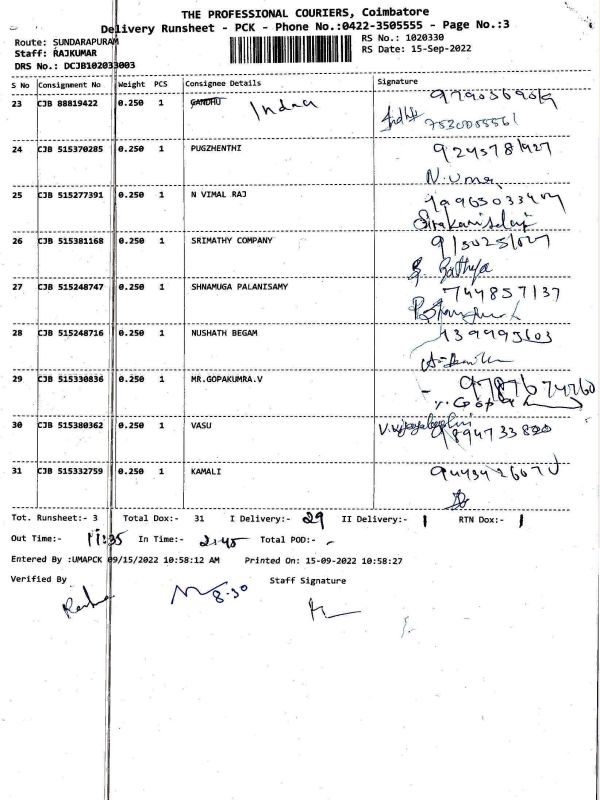 THE PROFESSIONAL COURIERS, Coimbatore
Delivery Runsheet - PCK - Phone No.:0422-3505555 - Page No.:3
Route: SUNDARAPURAM
RS No.: 1020330
Staff: RAJKUMAR
RS Date: 15-Sep-2022
DRS No.: DCJB102033003
S No Consignment No Weight PCS Consignee Details Signature
23 CJB 88819422 0.250 1 GANDHU
7530055561
24 CJB 515370285 0.250 1 PUGZHENTHI
N. Uma
25 CJB 515277391 0.250 1 N VIMAL RAJ
26 CJB 515381168 0.250 1 SRIMATHY COMPANY
27 CJB 515248747 0.250 1 SHNAMUGA PALANISAMY
744857137
28 CJB 515248716 0.250 1 NUSHATH BEGAM
29 CJB 515330836 0.250 1 MR.GOPAKUMRA.V
9787674760
30 CJB 515380362 0.250 1 VASU
31 CJB 515332759 0.250 1 KAMALI
Tot. Runsheet:- 3 Total Dox:- 31 I Delivery:- 29 II Delivery:- 1 RTN Dox:- 1
Out Time:- 11:35 In Time:- 2:45 Total POD:- -
Entered By :UMAPCK 09/15/2022 10:58:12 AM Printed On: 15-09-2022 10:58:27
Verified By Staff Signature
8.30